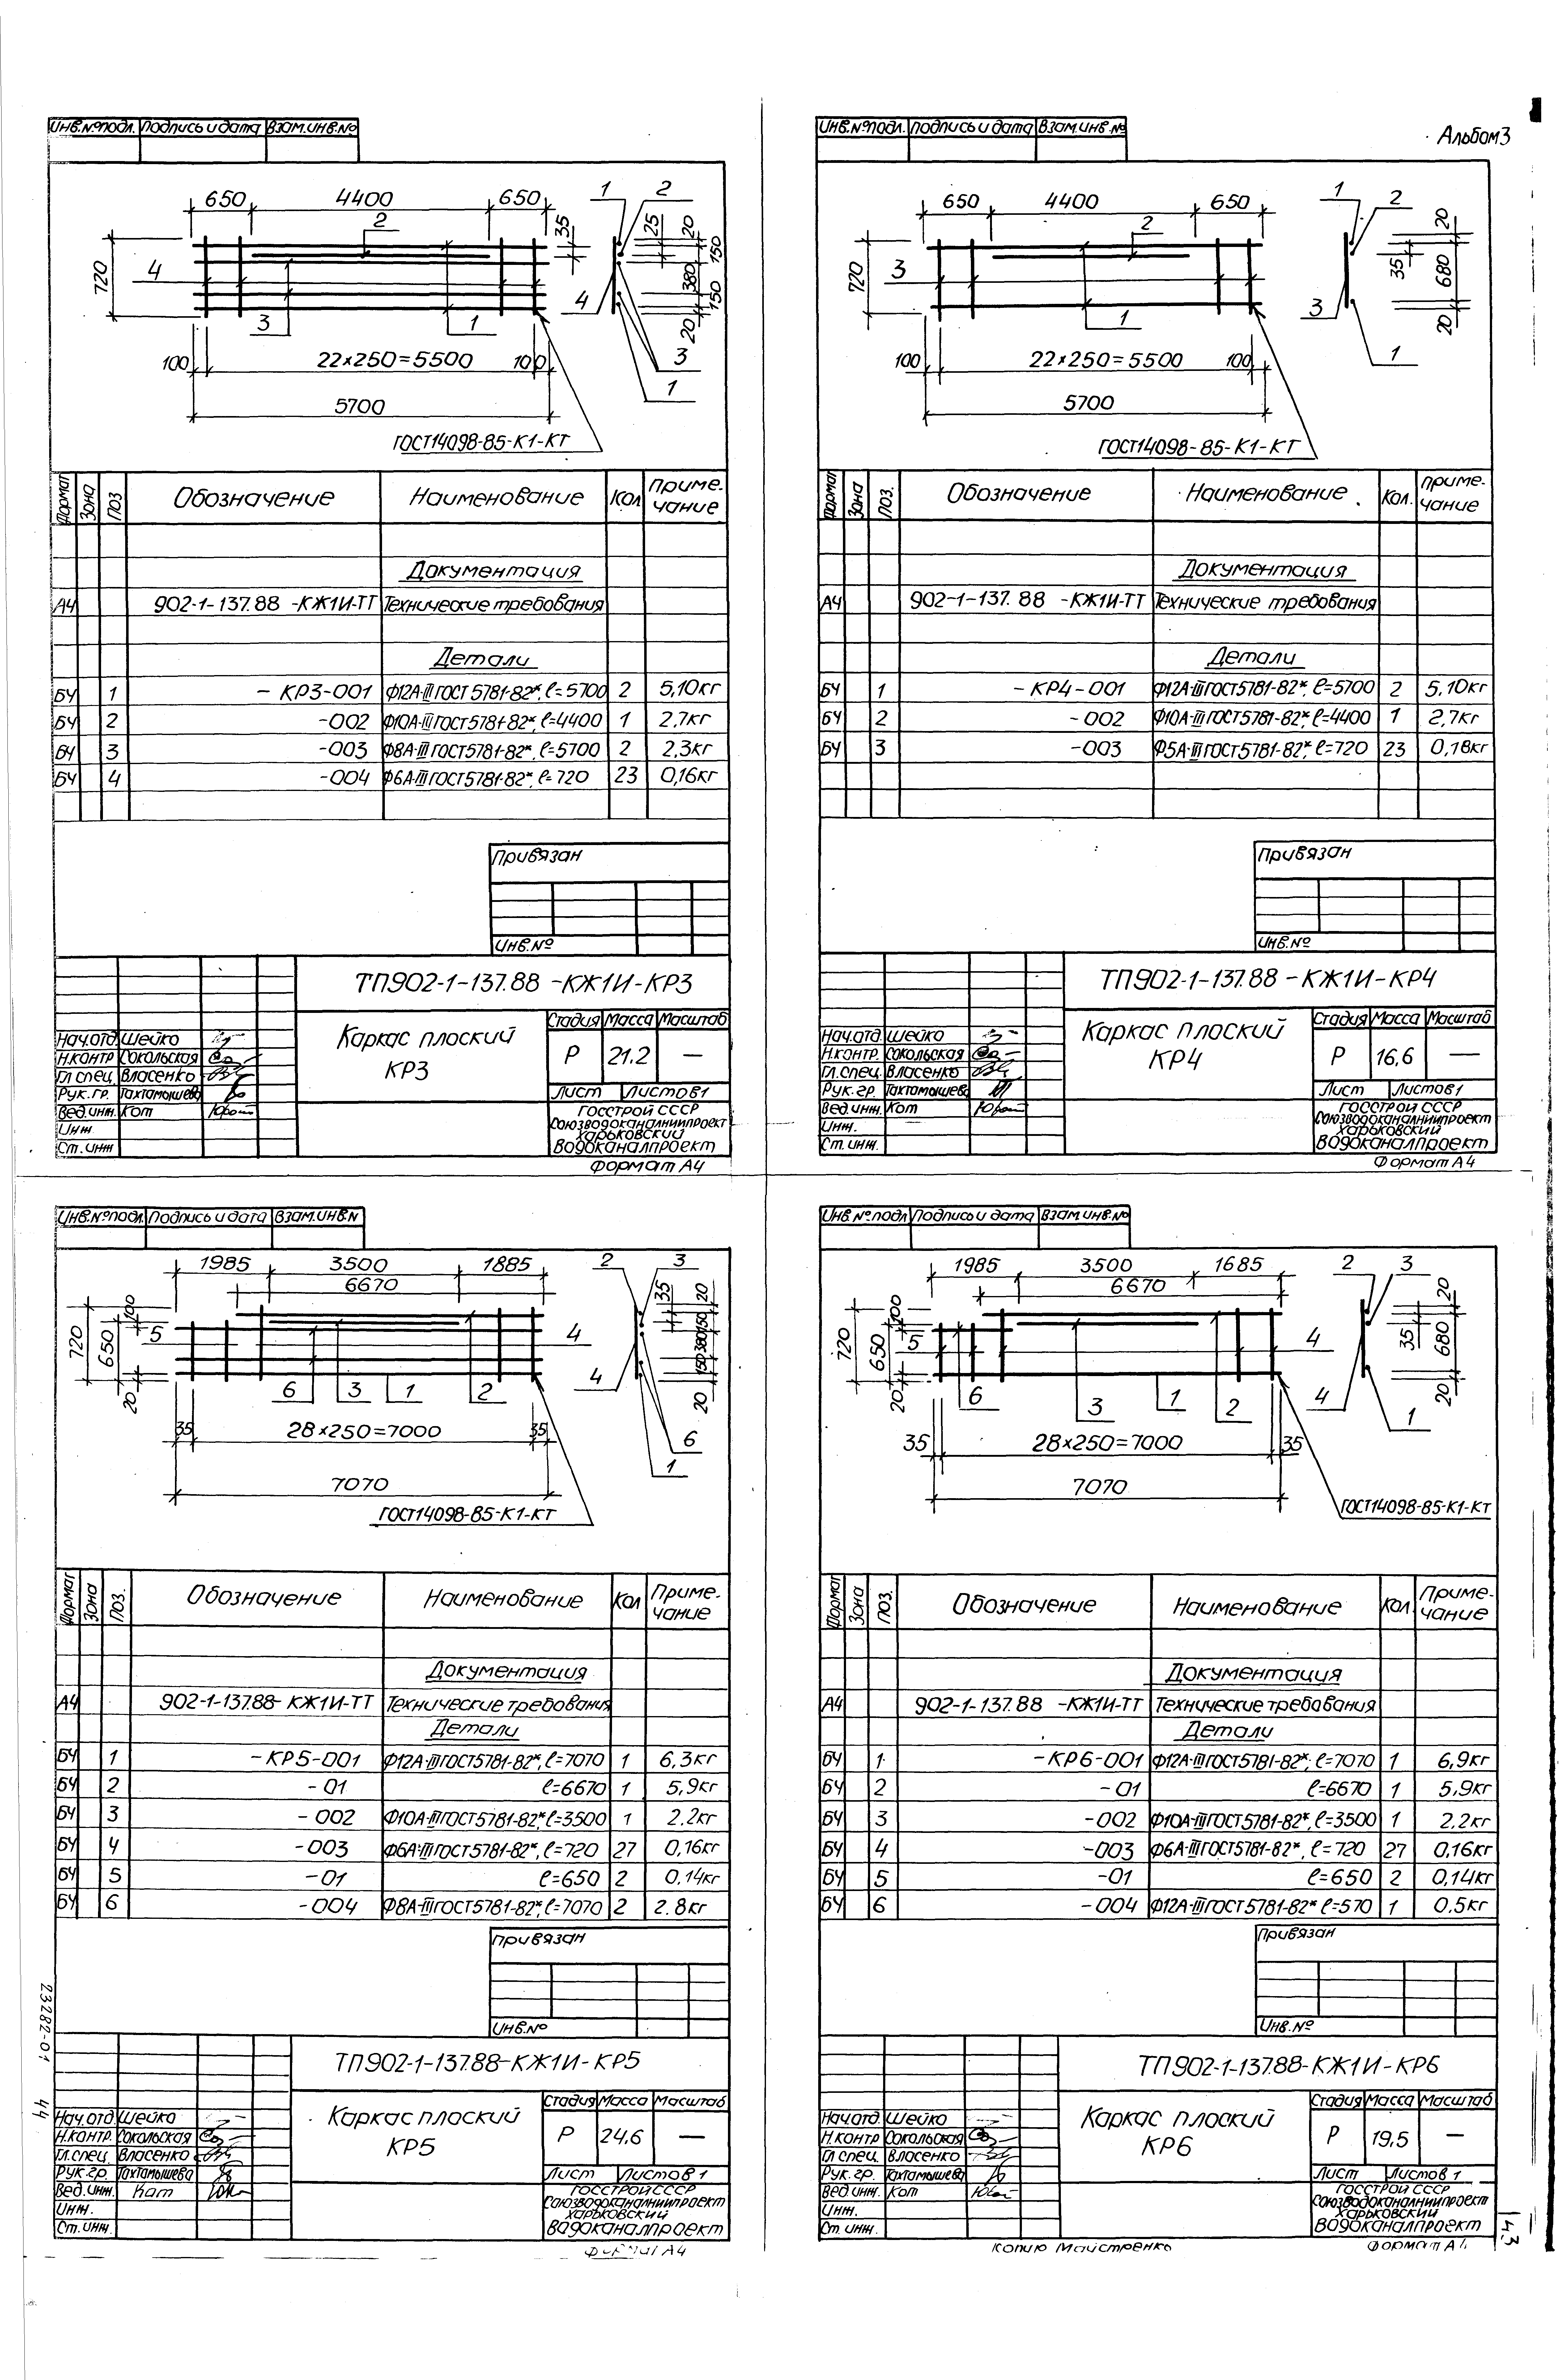 Альбом 3
Инв.№подл. Подпись и дата Взам.инв.№
650 4400 650
1 2
2
35 25 20
150
720
4
380
4
150
3 1
20
100 22×250=5500 100
3
1
5700
ГОСТ14098-85-К1-КТ
Формат Зона Поз Обозначение Наименование Кол Приме-
чание
Документация
А4 902-1-137.88 -КЖ1И-ТТ Технические требования
Детали
БЧ 1 - КР3-001 Ф12А-III ГОСТ 5781-82*, ℓ=5700 2 5,10кг
БЧ 2 -002 Ф10А-III ГОСТ 5781-82*, ℓ=4400 1 2,7кг
БЧ 3 -003 Ф8А-III ГОСТ 5781-82*, ℓ=5700 2 2,3кг
БЧ 4 -004 Ф6А-III ГОСТ 5781-82*, ℓ=720 23 0,16кг
Привязан
Инв.№
ТП902-1-137.88 -КЖ1И-КР3
Каркас плоский
КР3
Стадия Масса Масштаб
Р 21.2 —
Лист Листов 1
Нач.отд. Шейко
Н.контр Сокольская
Гл спец. Власенко
Рук.гр. Тахтамышева
Вед.инж. Кот
Инж.
Ст.инж
ГОССТРОЙ СССР
Союзводоканалниипроект
Харьковский
Водоканалпроект
Формат А4
Инв.№подл. Подпись и дата Взам.инв.№
650 4400 650
1 2
2
20
35
720
3
680
3
1
20
1
100 22×250=5500 100
5700
ГОСТ14098-85-К1-КТ
Формат Зона Поз. Обозначение Наименование Кол. Приме-
чание
Документация
А4 902-1-137.88 -КЖ1И-ТТ Технические требования
Детали
БЧ 1 - КР4-001 Ф12А-III ГОСТ 5781-82*, ℓ=5700 2 5,10кг
БЧ 2 -002 Ф10А-III ГОСТ 5781-82*, ℓ=4400 1 2,7кг
БЧ 3 -003 Ф5А-III ГОСТ 5781-82*, ℓ=720 23 0,18кг
Привязан
Инв.№
ТП902-1-137.88 -КЖ1И-КР4
Каркас плоский
КР4
Стадия Масса Масштаб
Р 16,6 —
Лист Листов 1
Нач.отд. Шейко
Н.контр. Сокольская
Гл.спец. Власенко
Рук.гр. Тахтамышева
Вед.инж. Кот
Инж.
Ст.инж.
ГОССТРОЙ СССР
Союзводоканалниипроект
Харьковский
Водоканалпроект
Формат А4
Инв.№подл. Подпись и дата Взам.инв.N
1985 3500 1885
6670
2 3
35 20
100
150
720 650
5 4
380
150
4
20
6 3 1 2
20
35 28×250=7000 35
6
1
7070
ГОСТ14098-85-К1-КТ
Формат Зона Поз. Обозначение Наименование Кол Приме-
чание
Документация
А4 902-1-137.88- КЖ1И-ТТ Технические требования
Детали
БЧ 1 -КР5-001 Ф12А-III ГОСТ 5781-82*, ℓ=7070 1 6,3кг
БЧ 2 -01 ℓ=6670 1 5,9кг
БЧ 3 -002 Ф10А-III ГОСТ 5781-82*, ℓ=3500 1 2.2кг
БЧ 4 -003 Ф6А-III ГОСТ 5781-82*, ℓ=720 27 0,16кг
БЧ 5 -01 ℓ=650 2 0.14кг
БЧ 6 -004 Ф8А-III ГОСТ 5781-82*, ℓ=7070 2 2.8кг
Привязан
Инв.№
ТП902-1-137.88-КЖ1И-КР5
Каркас плоский
КР5
Стадия Масса Масштаб
Р 24,6 —
Лист Листов 1
Нач.отд. Шейко
Н.контр. Сокольская
Гл.спец. Власенко
Рук.гр. Тахтамышева
Вед.инж. Кот
Инж.
Ст.инж.
ГОССТРОЙ СССР
Союзводоканалниипроект
Харьковский
Водоканалпроект
Формат А4
23282-01 44
Инв.№подл Подпись и дата Взам.инв.№
1985 3500 1685
6670
2 3
20
100
35
720 650
5 4
680
4
20
6 3 1 2
20
1
35 28×250=7000 35
7070
ГОСТ14098-85-К1-КТ
Формат Зона Поз. Обозначение Наименование Кол. Приме-
чание
Документация
А4 902-1-137.88 -КЖ1И-ТТ Технические требования
Детали
БЧ 1 -КР6-001 Ф12А-III ГОСТ 5781-82*, ℓ=7070 1 6,9кг
БЧ 2 -01 ℓ=6670 1 5,9кг
БЧ 3 -002 Ф10А-III ГОСТ 5781-82*, ℓ=3500 1 2.2кг
БЧ 4 -003 Ф6А-III ГОСТ 5781-82*, ℓ=720 27 0,16кг
БЧ 5 -01 ℓ=650 2 0,14кг
БЧ 6 -004 Ф12А-III ГОСТ 5781-82* ℓ=570 1 0.5кг
Привязан
Инв.№
ТП902-1-137.88-КЖ1И-КР6
Каркас плоский
КР6
Стадия Масса Масштаб
Р 19,5 —
Лист Листов 1
Нач.отд. Шейко
Н.контр Сокольская
Гл.спец. Власенко
Рук.гр. Тахтамышева
Вед инж. Кот
Инж.
Ст.инж.
ГОССТРОЙ СССР
Союзводоканалниипроект
Харьковский
Водоканалпроект
Копию Майстренко
Формат А4
43